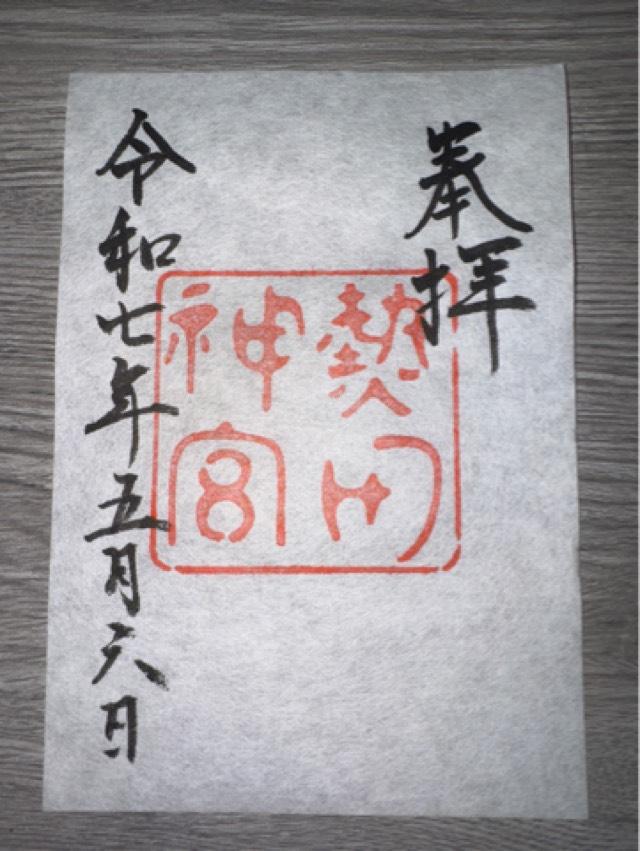 奉拝
熱田
神宮
令和七年五月六日